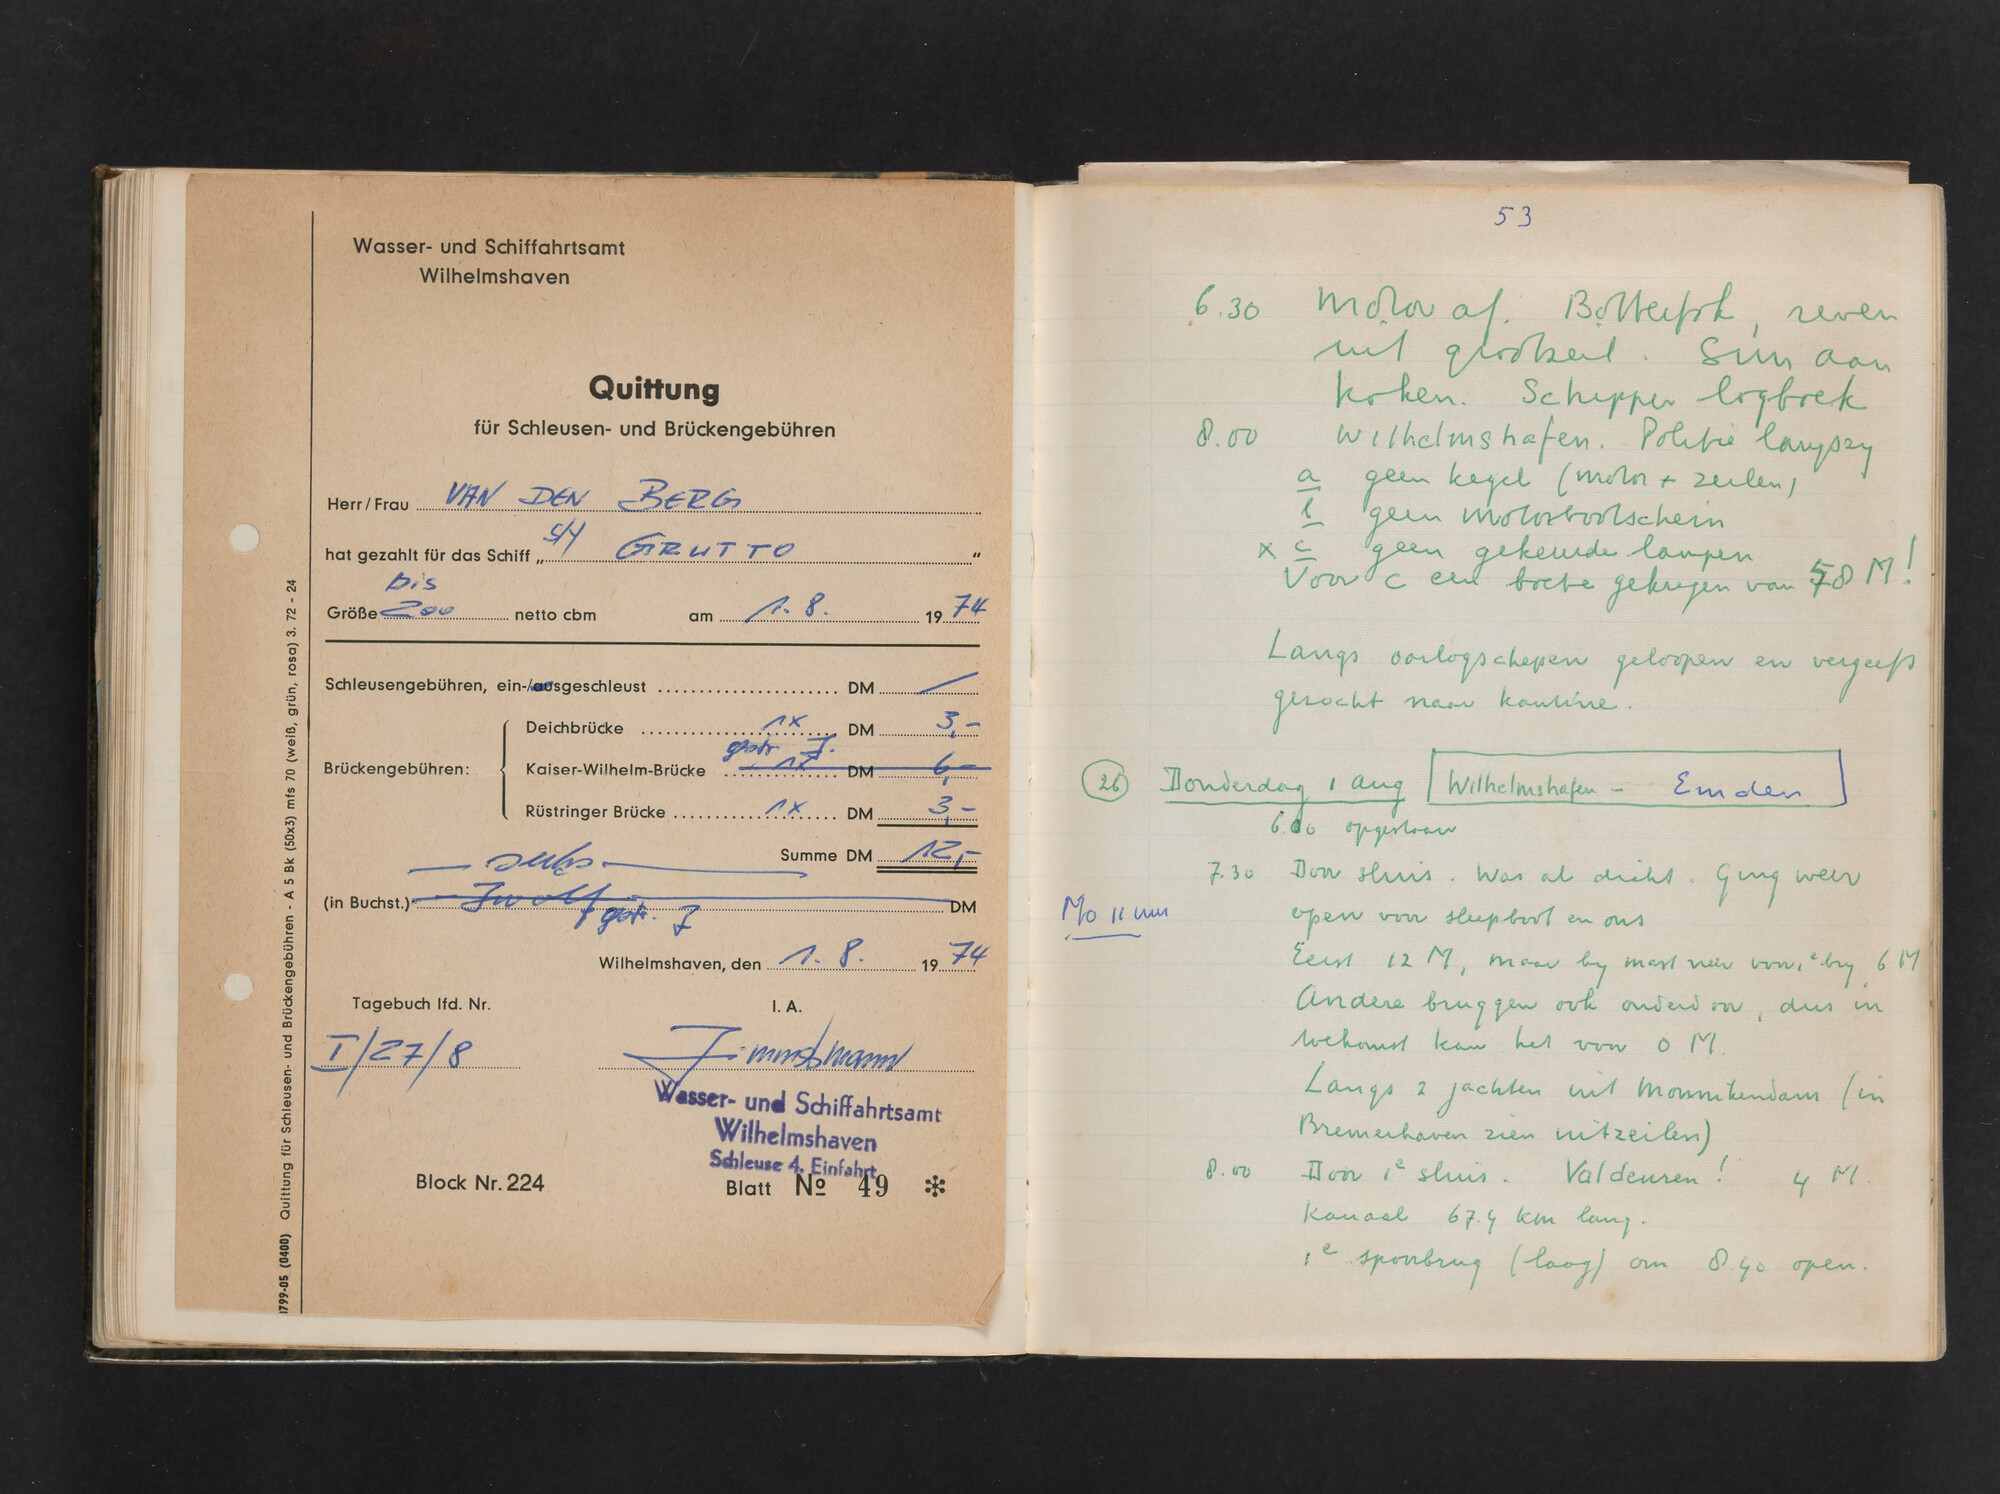 Wasser- und Schiffahrtsamt
Wilhelmshaven
Quittung
für Schleusen- und Brückengebühren
Herr/Frau VAN DEN BERG
hat gezahlt für das Schiff „ S/Y GRUTTO "
bis
Größe 200 netto cbm am 1.8. 1974
Schleusengebühren, ein-/ausgeschleust DM /
Deichbrücke 1x DM 3,-
gestr. Z.
Brückengebühren: Kaiser-Wilhelm-Brücke 1x DM 6,-
Rüstringer Brücke 1x DM 3,-
Summe DM 12,-
— sechs —
(in Buchst.) Zwölf DM
gestr. Z
Wilhelmshaven, den 1.8. 1974
Tagebuch lfd. Nr. I. A.
I/27/8 Zimmermann
Wasser- und Schiffahrtsamt
Wilhelmshaven
Schleuse 4. Einfahrt
Block Nr. 224 Blatt № 49 ✻
1799-05 (0400) Quittung für Schleusen- und Brückengebühren - A 5 Bk (50x3) mfs 70 (weiß, grün, rosa) 3. 72 - 24
53
6.30 Motor af. Botterfok, reven
uit grootzeil. Siem aan
koken. Schipper logboek
8.00 Wilhelmshafen. Politie langszy
a geen kegel (motor + zeilen)
b geen motorbootschein
x c geen gekeurde lampen
Voor c een boete gekregen van 58 M!
Langs oorlogschepen geloopen en vergeefs
gezocht naar kantine.
26 Donderdag 1 aug Wilhelmshafen - Emden
6.00 opgestaan
7.30 Door sluis. Was al dicht. Ging weer
Mo 11 uur
open voor sleepboot en ons
Eerst 12 M, maar by mast neer voor 1e brg 6 M
Andere bruggen ook onderdoor, dus in
toekomst kan het voor 0 M.
Langs 2 jachten uit Monnikendam (in
Bremerhaven zien uitzeilen)
8.00 Door 1e sluis. Valdeuren! 4 M.
Kanaal 67.4 km lang.
1e spoorbrug (laag) om 8.40 open.